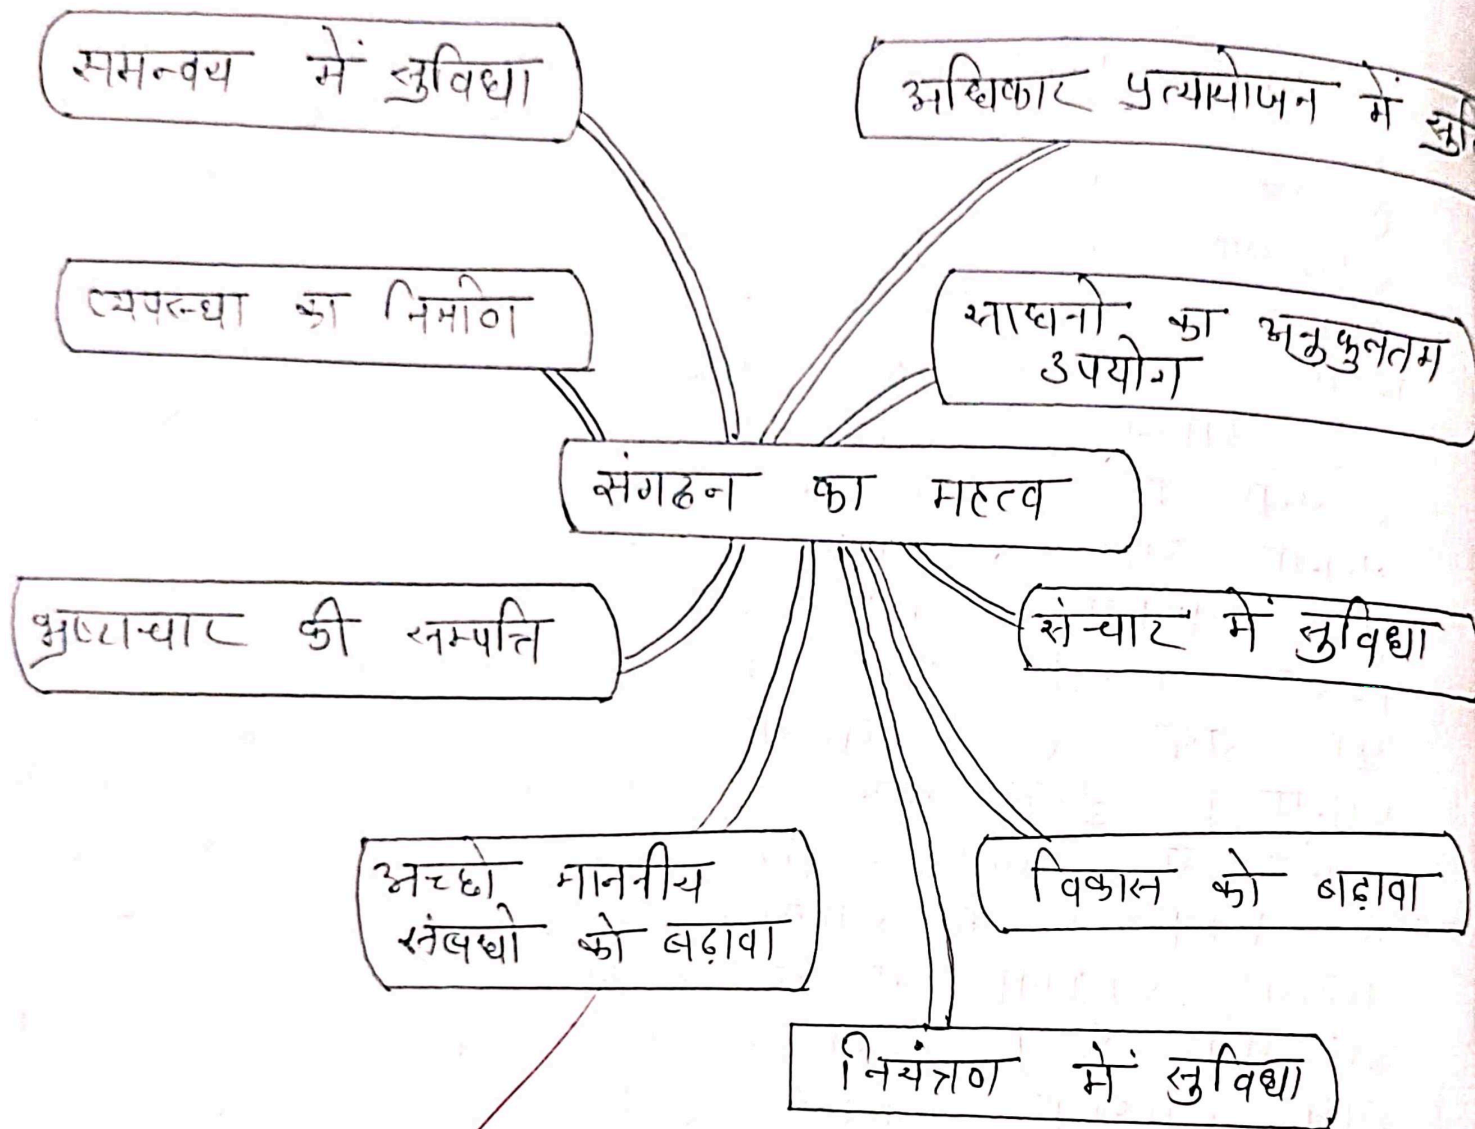 समन्वय में सुविधा
अधिकार प्रत्यायोजन में सुवि
व्यवस्था का निर्माण
साधनो का अनुकुलतम
उपयोग
संगठन का महत्व
भ्रष्टाचार की सम्पत्ति
संचार में सुविधा
अच्छो माननीय
संबधो को बढ़ावा
विकास को बढ़ावा
नियंत्रण में सुविधा